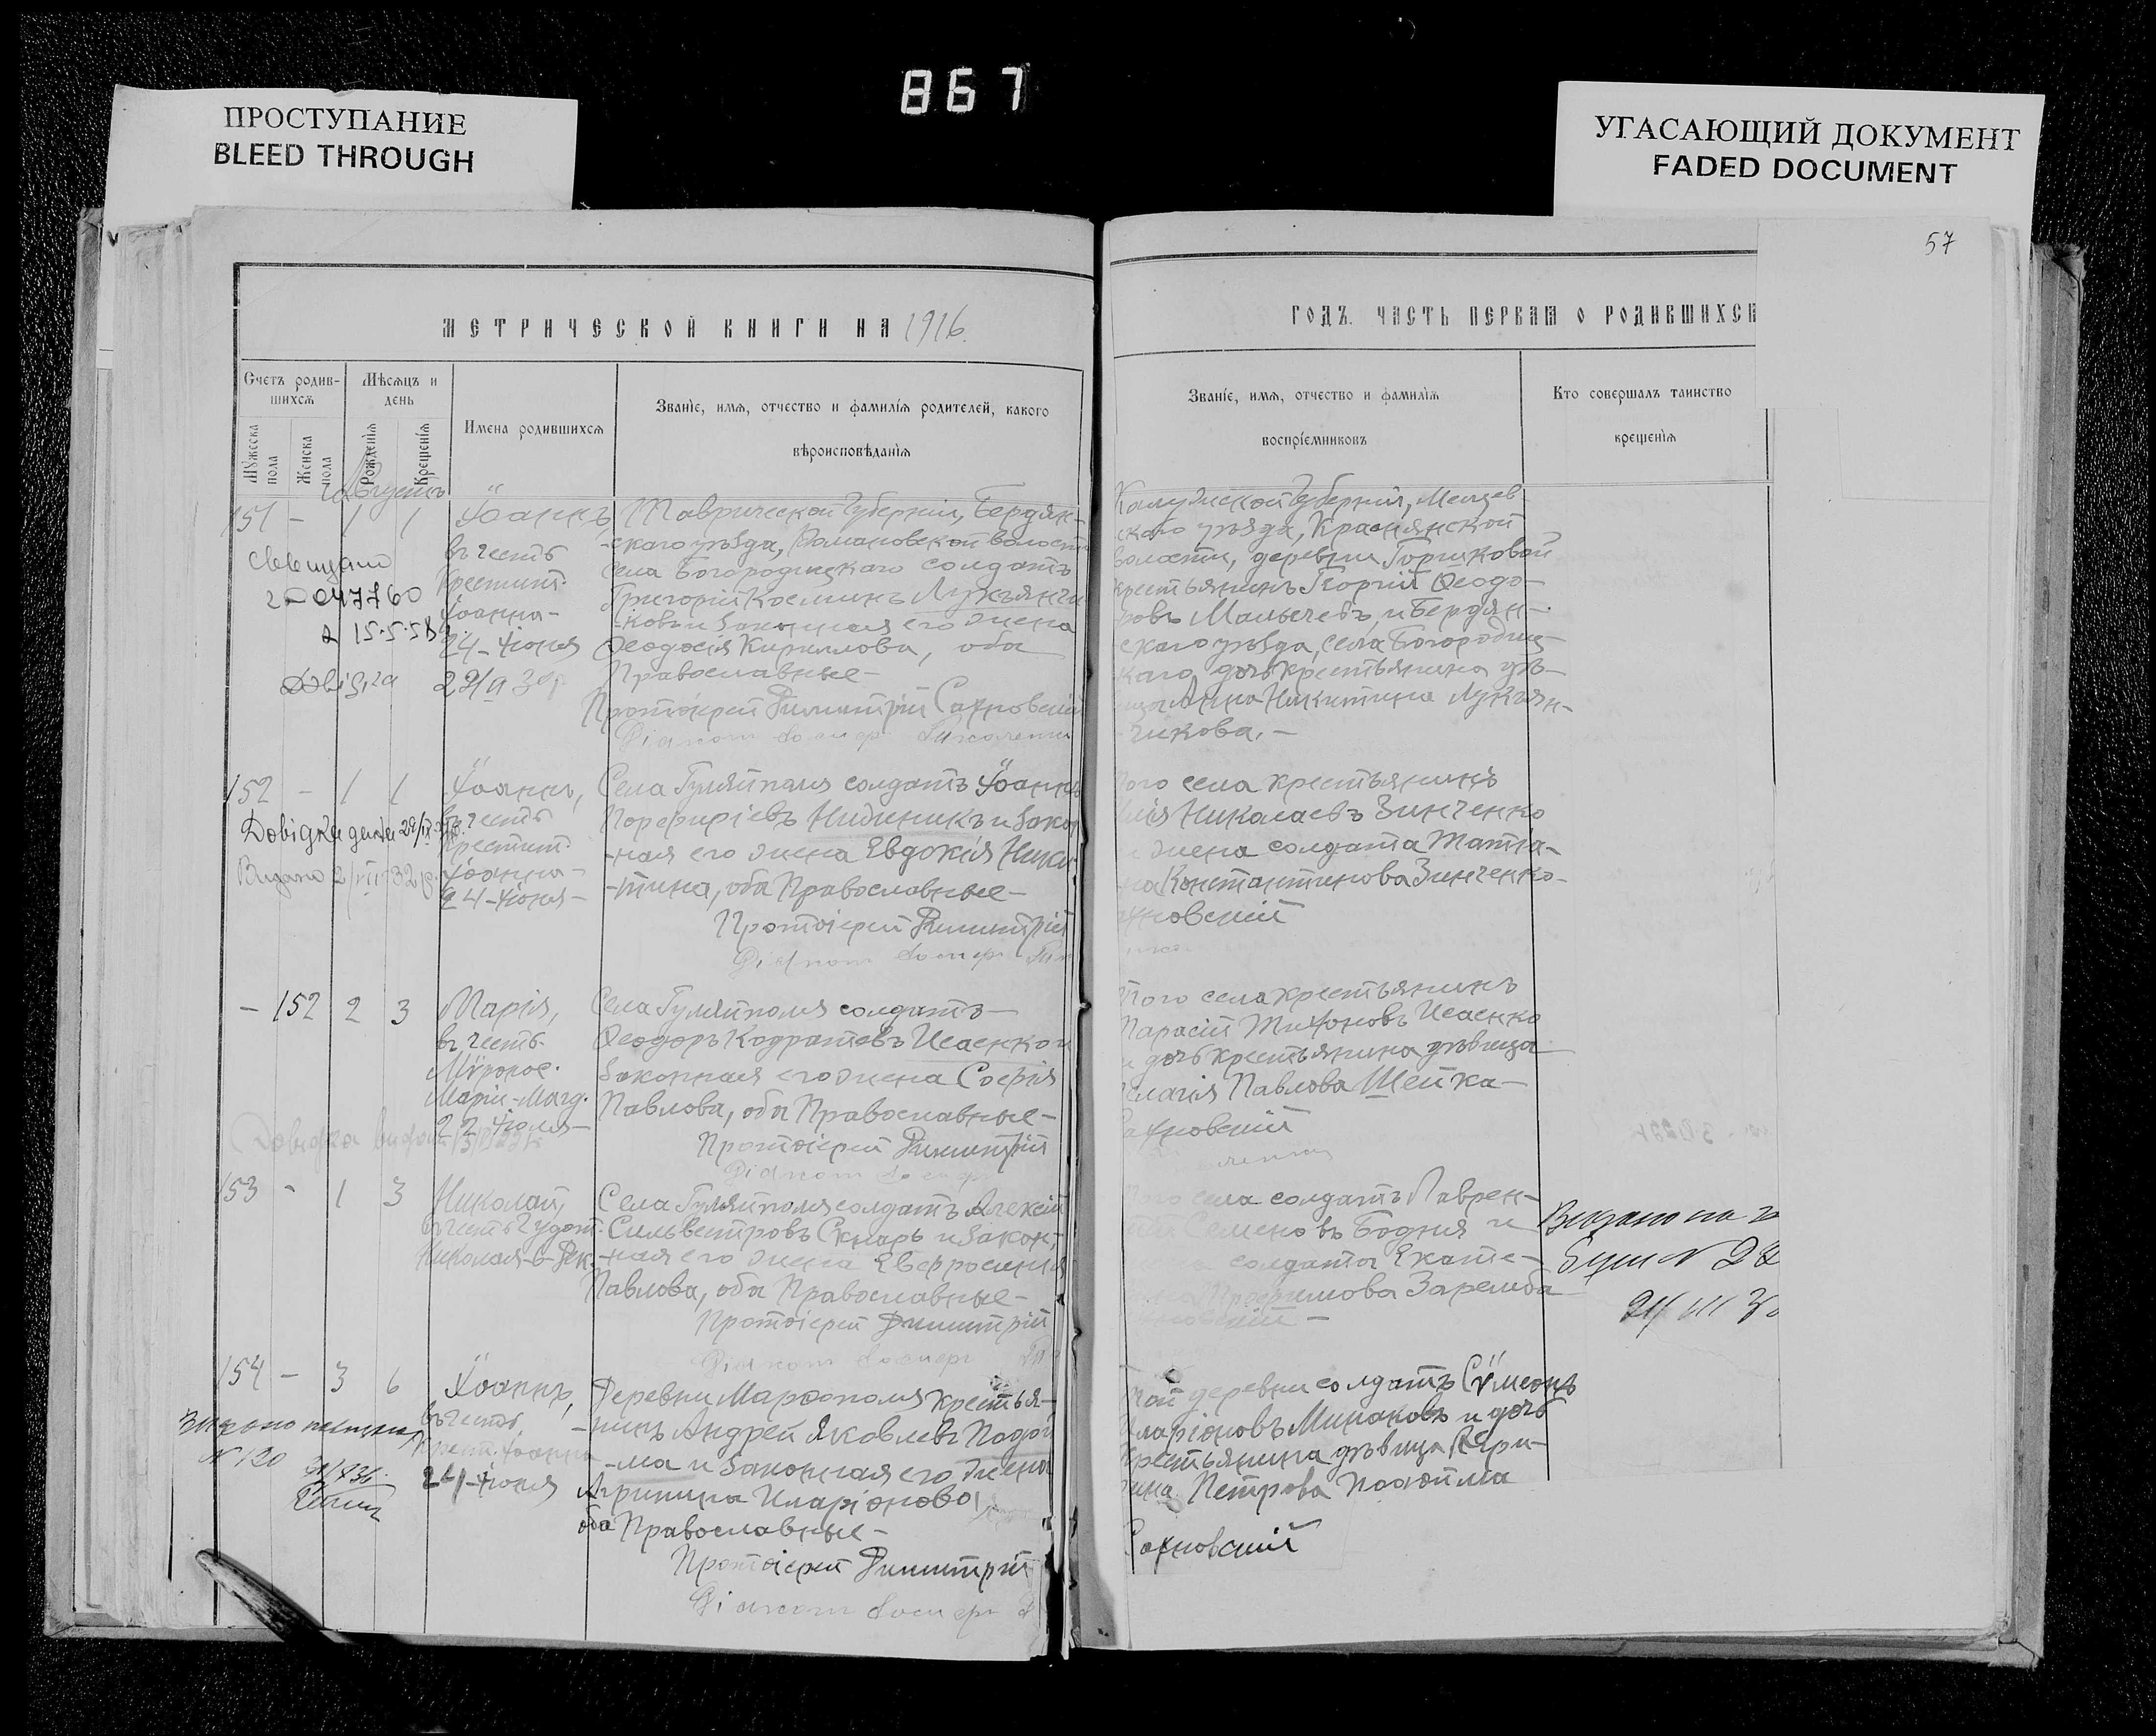 867
ПРОСТУПАНИЕ
BLEED THROUGH
УГАСАЮЩИЙ ДОКУМЕНТ
FADED DOCUMENT
57
МЕТРИЧЕСКОЙ КНИГИ НА 1916.
ГОДЪ. ЧАСТЬ ПЕРВАЯ О РОДИВШИХСЯ
Счетъ родив-
шихся
Мужеска пола
Женска пола
Мѣсяцъ и
день
Рожденія
Крещенія
Имена родившихся
Званіе, имя, отчество и фамилія родителей, какого
вѣроисповѣданія
Званіе, имя, отчество и фамилія
воспріемниковъ
Кто совершалъ таинство
крещенія
Августъ
151 - 1 1
Іоаннъ
въ честь
Крестит.
Іоанна-
24-Іюня
15.5.58
Таврической Губерніи, Бердян-
-скаго уѣзда, Романовской волости
села Богородицкаго солдатъ
Григорій Косминъ Лукъянчи-
-ковъ и законная его жена
Ѳеодосія Кириллова, оба
Православные-
Протоіерей Димитрій Сахновскій
Калужской Губерніи, Мещев-
скаго уѣзда, Краснянской
волости, деревни Горшковой
крестьянинъ Георгій Ѳеодо-
ровъ Малычевъ, и Бердян-
скаго уѣзда, села Богородиц-
каго дочь крестьянина дѣ-
вица Анна Никитина Лукъян-
-чикова.-
152 - 1 1
Іоаннъ,
въ честь
Крестит.
Іоанна-
24-Іюня-
Довідка дана
Видано
Села Гуляйполя солдатъ Іоаннъ
Порфиріевъ Нидиникъ и закон
-ная его жена Евдокія Ники-
-тина, оба Православные-
Протоіерей Димитрій
того села крестьянинъ
Николаевъ Зинченко
и жена солдата Татіа-
на Константинова Зинченко-
ахновскій
- 152 2 3
Марія,
въ честь
Мѵронос.
Маріи-Магд.
22 Іюля-
Довідка видана
Села Гуляйполя солдатъ-
Ѳеодоръ Кодратовъ Исаенко и
законная его жена Софія
Павлова, оба Православные-
Протоіерей Димитрій
Того села крестьянинъ
Тарасій Тихоновъ Исаенко
и дочь крестьянина дѣвица
елагія Павлова Шейка-
Сахновскій
153 - 1 3
Николай,
въ честь Чудот.
Николая-6-Дек.
Села Гуляйполя солдатъ Алексій
Сильвестровъ Скнарь и закон-
-ная его жена Евфросинія
Павлова, оба Православные-
Протоіерей Димитрій
села солдатъ Лаврен-
Семеновъ Бодня и
солдата Екате-
Трофимова Заремба
Видано на
154 - 3 6
Іоаннъ,
въ честь
Крест. Іоанна
24-Іюня
N 120
Деревни Марфополя крестья-
-нинъ Андрей Яковлевъ Подой
-ма и законная его жена
Агрипина Иларіонова,
оба Православные-
Протоіерей Димитрій
той деревни солдатъ Сѵмеонъ
Иларіоновъ Минаковъ и дочь
крестьянина дѣвица
Петрова Подойма
Сахновскій